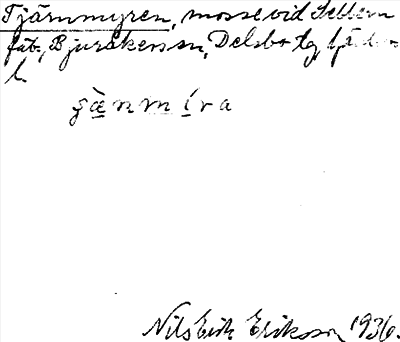 Tjärnmyren, mosse vid Sellern
fäb., Bjuråkers sn, Delsbo tg,
l.
şä̱nmi̱ra
Nils Erik Eriksson 1936.